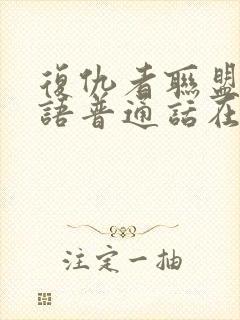 復仇者聯盟
語普通話在
注定一抽